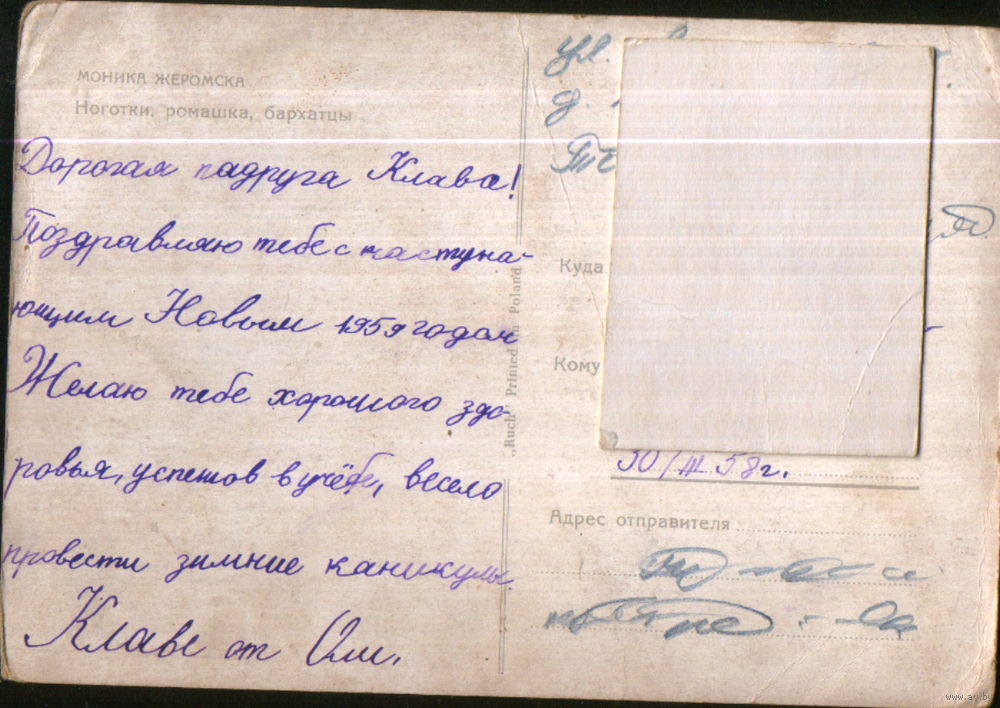 МОНИКА ЖЕРОМСКА
Ноготки, ромашка, бархатцы
Дорогая падруга Клава!
Поздравляю тебе с наступа-
ющим Новым 1959 годом
Желаю тебе хорошого здо-
ровья, успехов в учёбе, весело
провести зимние каникулы.
Клаве от Оли.
„Ruch" Printed in Poland
ул.
д.
Куда
Кому
30/III 58г.
Адрес отправителя
www.ay.by